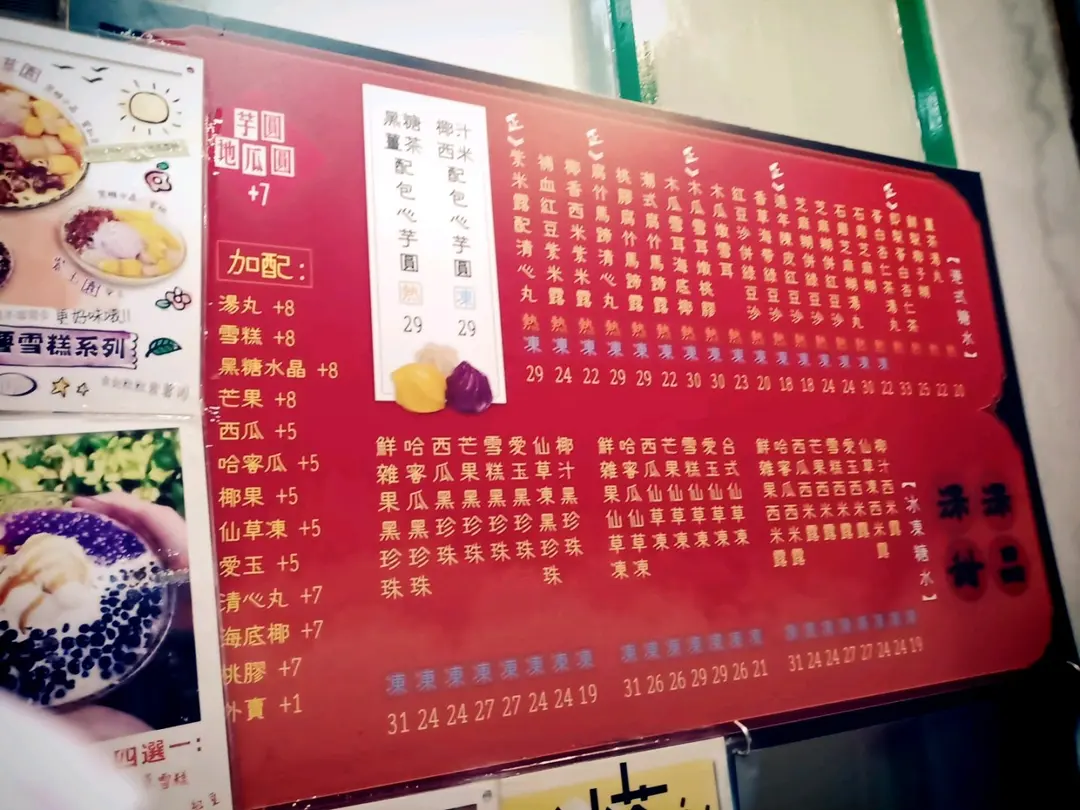 芋圓
地瓜圓
+7
加配：
湯丸 +8
雪糕 +8
黑糖水晶 +8
芒果 +8
西瓜 +5
哈密瓜 +5
椰果 +5
仙草凍 +5
愛玉 +5
清心丸 +7
海底椰 +7
桃膠 +7
外賣 +1
黑糖薑茶配包心芋圓 熱 29
椰汁西米配包心芋圓 凍 29
【港式糖水】
薑茶湯丸
石磨芝麻糊
石磨芝麻糊湯丸
芝麻糊併紅豆沙
芝麻糊併綠豆沙
遠年陳皮紅豆沙
香草海帶綠豆沙
紅豆沙併綠豆沙
木瓜燉雪耳
木瓜雪耳燉桃膠
木瓜雪耳海底椰
潮式腐竹馬蹄露
桃膠腐竹馬蹄露
腐竹馬蹄清心丸
椰香西米紫米露
補血紅豆紫米露
紫米露配清心丸
29 24 22 29 29 22 30 30 23 20 18 18 24 24 30 22 33 25 22 20
【冰凍糖水】
鮮雜果黑珍珠 凍 31
哈密瓜黑珍珠 凍 24
西瓜黑珍珠 凍 24
芒果黑珍珠 凍 27
雪糕黑珍珠 凍 27
愛玉黑珍珠 凍 24
仙草凍黑珍珠 凍 24
椰汁黑珍珠 凍 19
鮮雜果仙草凍 凍 31
哈密瓜仙草凍 凍 26
西瓜仙草凍 凍 26
芒果仙草凍 凍 29
雪糕仙草凍 凍 29
愛玉仙草凍 凍 26
合式仙草凍 凍 21
鮮雜果西米露 凍 31
哈密瓜西米露 凍 24
西瓜西米露 凍 24
芒果西米露 凍 27
雪糕西米露 凍 27
愛玉西米露 凍 24
仙草凍西米露 凍 24
椰汁西米露 凍 19
更好味哦!!
雪糕系列
四選一：
雪糕